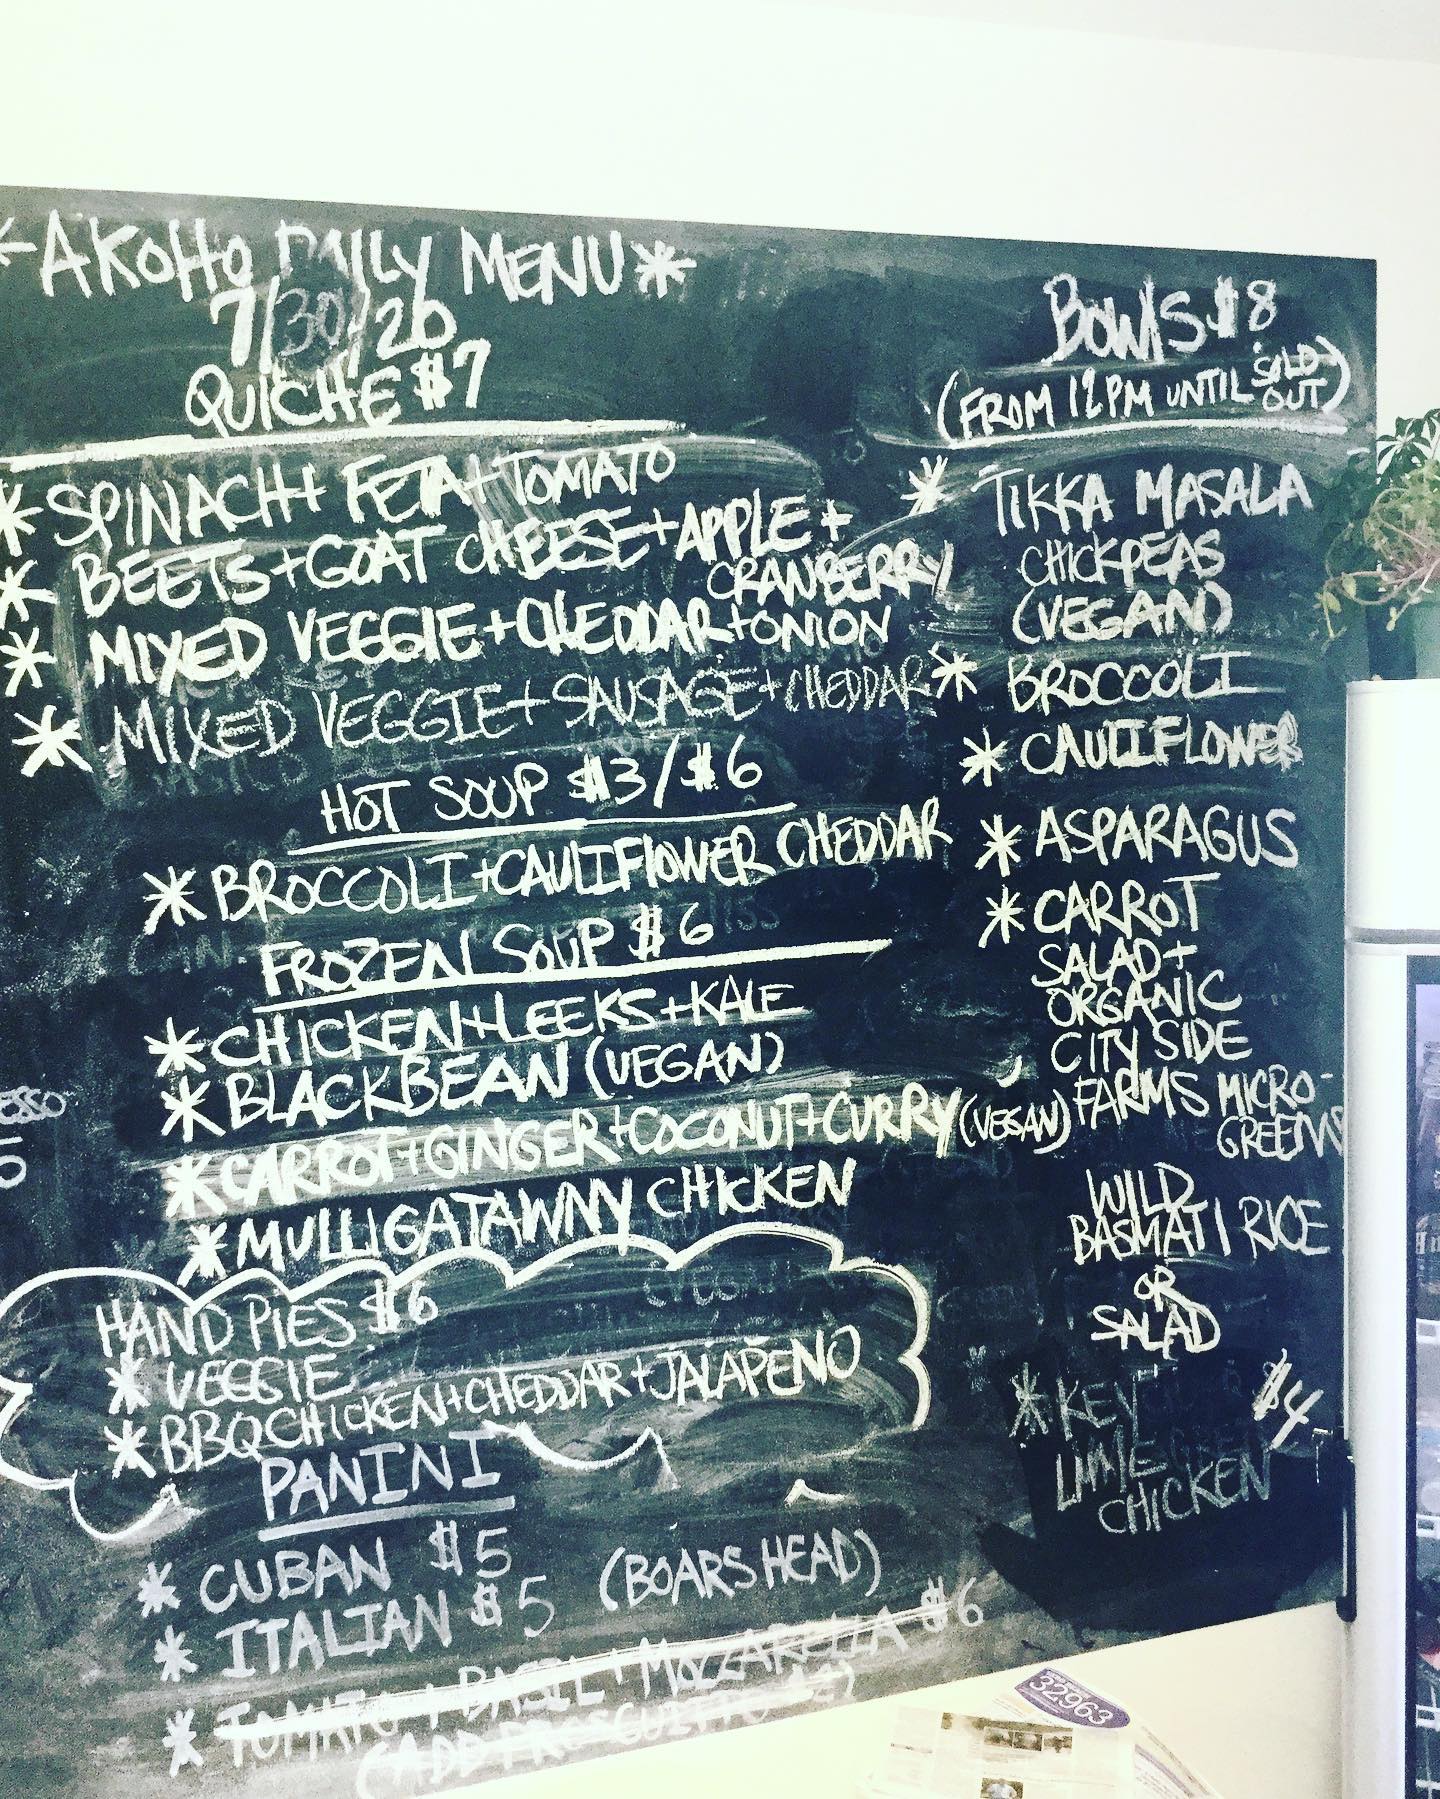 *AKOHO DAILY MENU*
7/30/20
QUICHE $7
* SPINACH + FETA + TOMATO
* BEETS + GOAT CHEESE + APPLE +
CRANBERRY
* MIXED VEGGIE + CHEDDAR + ONION
* MIXED VEGGIE + SAUSAGE + CHEDDAR
HOT SOUP $3/$6
* BROCCOLI + CAULIFLOWER CHEDDAR
FROZEN SOUP $6
* CHICKEN + LEEKS + KALE
* BLACK BEAN (VEGAN)
* CARROT + GINGER + COCONUT + CURRY (VEGAN)
* MULLIGATAWNY CHICKEN
HAND PIES $6
* VEGGIE
* BBQ CHICKEN + CHEDDAR + JALAPEÑO
PANINI
* CUBAN $5
* ITALIAN $5 (BOARS HEAD)
* TOMATO + BASIL + MOZZARELLA $6
(ADD PROSCUITTO
BOWLS $8
(FROM 12PM UNTIL SOLD
OUT)
* TIKKA MASALA
CHICKPEAS
(VEGAN)
* BROCCOLI
* CAULIFLOWER
* ASPARAGUS
* CARROT
SALAD +
ORGANIC
CITY SIDE
FARMS MICRO-
GREENS
WILD
BASMATI RICE
OR
SALAD
* KEY $4
LIME
CHICKEN
32963